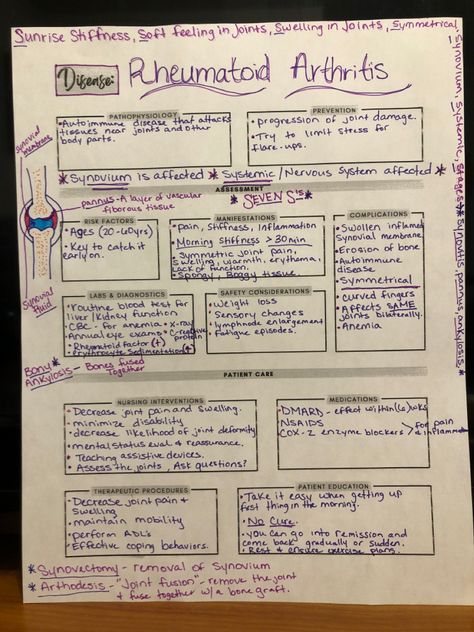 Sunrise Stiffness, Soft feeling in joints, Swelling in Joints, Symmetrical,
Synovium, Systemic, Stages * Synovitis, pannus, ankylosis. *
Disease:
Rheumatoid Arthritis
PATHOPHYSIOLOGY
• Autoimmune disease that attacks
tissues near joints and other
body parts.
PREVENTION
• progression of joint damage.
• Try to limit stress for
flare-ups.
*Synovium is affected * Systemic / Nervous system affected *
Synovial membrane
Synovial Fluid
ASSESSMENT
pannus - A layer of vascular
fiborous tissue
* SEVEN S'is *
RISK FACTORS
• Ages (20-60yrs)
• Key to catch it
early on.
MANIFESTATIONS
• Pain, stiffness, Inflammation
• Morning stiffness > 30min
• Symmetric joint pain,
swelling, warmth, erythama,
lack of function.
• Spongy, Boggy tissue.
COMPLICATIONS
• Swollen inflamed
Synovial membrane.
• Erosion of bone
• Autoimmune
disease
• Symmetrical
• curved fingers
• Affects SAME
joints bilaterally.
• Anemia
LABS & DIAGNOSTICS
• routine blood test for
liver/Kidney function
• CBC - for anemia • X-ray
• Annual eye exams • C-reactive
protein
• Rheumatoid factor (+)
• Erythrocyte Sedimentation (+)
SAFETY CONSIDERATIONS
• Weight loss
• Sensory changes
• lymphnode enlargement
• Fatigue episodes.
Bony *
Ankylosis - Bones fused
together
PATIENT CARE
NURSING INTERVENTIONS
• Decrease joint pain and swelling.
• minimize disability
• decrease likelihood of joint deformity
• mental status eval & reassurance.
• Teaching assistive devices.
• Assess the joints, Ask questions?
MEDICATIONS
• DMARD - effect within (6) wks
• NSAIDS
• COX-2 enzyme blockers > for pain
& inflamm
THERAPEUTIC PROCEDURES
• Decrease joint pain &
swelling
• maintain mobility
• perform ADL's
• Effective coping behaviors.
PATIENT EDUCATION
• Take it easy when getting up
first thing in the morning.
• No Cure.
• you can go into remission and
come back gradually or sudden.
• Rest & ensure exercise plans.
* Synovectomy - removal of Synovium
* Arthodesis - "Joint fusion" - remove the joint
& fuse together w/a bone graft.